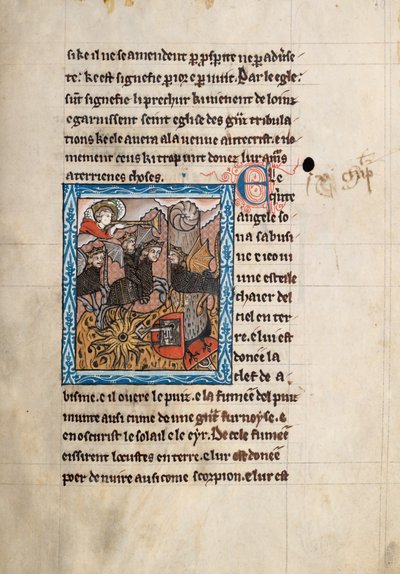 si ke il ne se amendent p̱ p̱sp̱ite ne p̱ aduerse
te: ke est signefie p̱ ior e p̱ nuit. Par le egle
sūt signefie li prechur ki uienent de loinz
e garnissent seint eglise des gn̄t tribula
tions ke ele auera a la uenue antecrist. e no
mement ceus ki trop unt donez lur
a terrienes choses.
E le
quite
angele so
na sa busi
ne e io ui
une esteile
chaier del
ciel en ter
re. e lui est
donee la
clef de a
bisme. e il ouere le puiz. e la fumee del puiz
munte ausi cume de une gn̄t furnoyse. e
en oscurist le solail e le eyr. De cele fumee
eissirent locustes en terre. e lur est donee
poer de nuire ausi come scorpion. e lur est